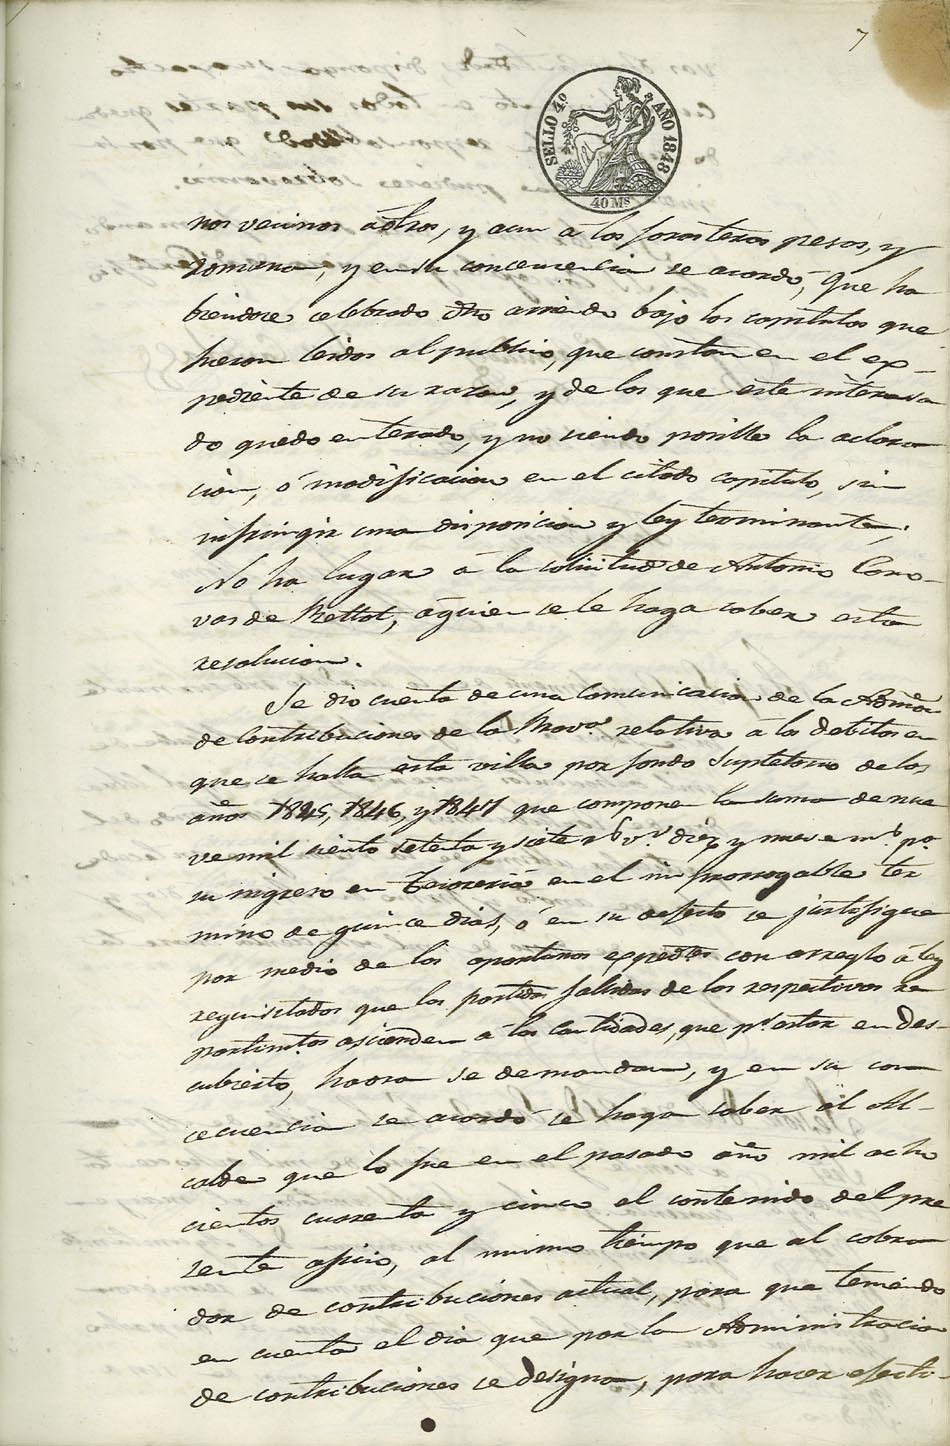 7
SELLO 4.º AÑO 1848
40 Ms
nos vecinos á otros, y aun á los forasteros pesos, y
romana, y en su concecuencia se acordó, Que ha
biendose celebrado dho arriendo bajo los capitulos que
fueron leidos al publico, que constan en el ex-
pediente de su razon, y de los que este interesa
do quedo enterado, y no siendo posible la aclara
cion, ó modificacion en el citado capitulo, sin
infringir una disposicion y ley terminante,
No ha lugar á la solicitud de Antonio Cano-
vas de Bettot, á quien se le haga saber esta
resolucion.
Se dio cuenta de una Comunicacion de la Admon
de Contribuciones de la Prova. relativa á los debitos en
que se halla esta villa por fondo Supletorio de los
años 1845, 1846, y 1847 que componen la suma de nue
ve mil ciento setenta y siete rs vn diez y nueve ms. pa.
su ingreso en Tesoreria en el improrrogable ter
mino de quince dias, ó en su defecto se justifique
por medio de los oportunos expedtes con arreglo á ley
requisitados que las partidas fallidas de los respectivos re
partimtos ascienden á las cantidades, que pr estar en des
cubierto, haora se demandan, y en su con
cecuencia se acordó se haga saber al Al-
calde que lo fue en el pasado año mil ocho
cientos cuarenta y cinco el contenido del pre
sente oficio, al mismo tiempo que al cobra
dor de contribuciones actual, para que teniendo
en cuenta el dia que por la Administracion
de contribuciones se designa, para hacer efecti-